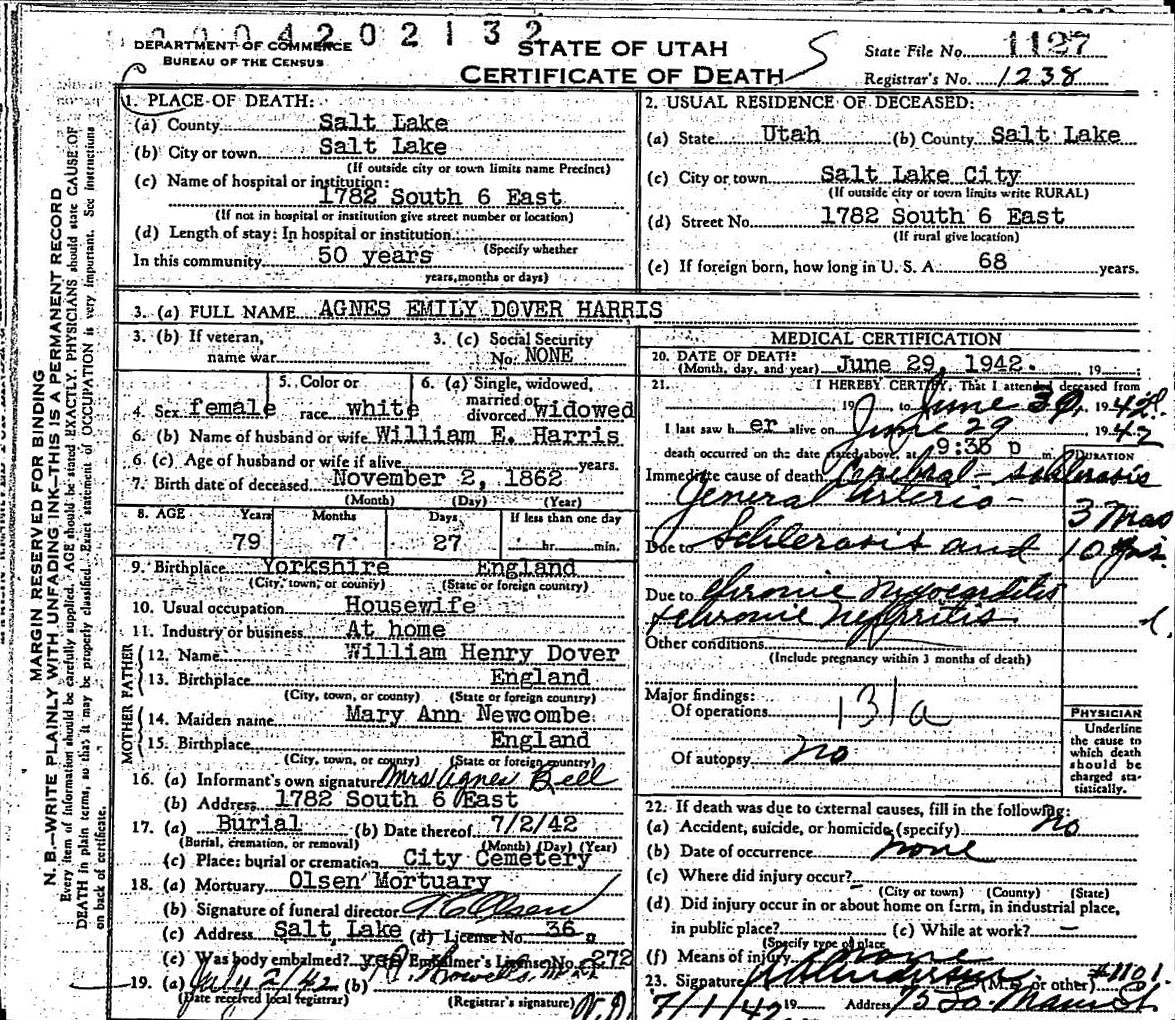 0004202132
DEPARTMENT OF COMMERCE
BUREAU OF THE CENSUS
STATE OF UTAH
CERTIFICATE OF DEATH
State File No. 1127
Registrar's No. 1238
MARGIN RESERVED FOR BINDING
N. B.—WRITE PLAINLY WITH UNFADING INK—THIS IS A PERMANENT RECORD
Every item of information should be carefully supplied. AGE should be stated EXACTLY. PHYSICIANS should state CAUSE OF
DEATH in plain terms, so that it may be properly classified. Exact statement of OCCUPATION is very important. See instructions
on back of certificate.
1. PLACE OF DEATH:
(a) County Salt Lake
(b) City or town Salt Lake
(If outside city or town limits name Precinct)
(c) Name of hospital or institution:
1782 South 6 East
(If not in hospital or institution give street number or location)
(d) Length of stay: In hospital or institution
(Specify whether
In this community 50 years
years, months or days)
2. USUAL RESIDENCE OF DECEASED:
(a) State Utah (b) County Salt Lake
(c) City or town Salt Lake City
(If outside city or town limits write RURAL)
(d) Street No. 1782 South 6 East
(If rural give location)
(e) If foreign born, how long in U. S. A. 68 years.
3. (a) FULL NAME AGNES EMILY DOVER HARRIS
3. (b) If veteran,
name war
3. (c) Social Security
No. NONE
4. Sex female
5. Color or
race white
6. (a) Single, widowed,
married or
divorced widowed
6. (b) Name of husband or wife William E. Harris
6. (c) Age of husband or wife if alive years.
7. Birth date of deceased November 2, 1862
(Month) (Day) (Year)
8. AGE Years Months Days If less than one day
79 7 27 hr. min.
9. Birthplace Yorkshire England
(City, town, or county) (State or foreign country)
10. Usual occupation Housewife
11. Industry or business At home
FATHER
12. Name William Henry Dover
13. Birthplace England
(City, town, or county) (State or foreign country)
MOTHER
14. Maiden name Mary Ann Newcombe
15. Birthplace England
(City, town, or county) (State or foreign country)
16. (a) Informant's own signature Mrs Agnes Bell
(b) Address 1782 South 6 East
17. (a) Burial (b) Date thereof 7/2/42
(Burial, cremation, or removal) (Month) (Day) (Year)
(c) Place: burial or cremation City Cemetery
18. (a) Mortuary Olsen Mortuary
(b) Signature of funeral director Olsen
(c) Address Salt Lake (d) License No. 36
(e) Was body embalmed? yes Embalmer's License No. 272
19. (a) July 2/42 (b)
(Date received local registrar) (Registrar's signature)
MEDICAL CERTIFICATION
20. DATE OF DEATH: June 29, 1942. 19
(Month, day, and year)
21. I HEREBY CERTIFY, That I attended deceased from
19 to June 30, 1942
I last saw her alive on June 29 1942
death occurred on the date stated above, at 9:35 p m. DURATION
Immediate cause of death Cerebral - schlerosis
General Arterio - 3 mos
Due to Schlerosis and 10 yrs.
Due to Chronic Myocarditis
& chronic nephritis
Other conditions
(Include pregnancy within 3 months of death)
Major findings:
Of operations 131a
Of autopsy no
PHYSICIAN
Underline
the cause to
which death
should be
charged sta-
tistically.
22. If death was due to external causes, fill in the following:
(a) Accident, suicide, or homicide (specify) no
(b) Date of occurrence none
(c) Where did injury occur? -
(City or town) (County) (State)
(d) Did injury occur in or about home on farm, in industrial place,
in public place? (e) While at work? —
(Specify type of place
(f) Means of injury none
23. Signature (M. D. or other) #1101
7/1/42 19 Address 75 So. Main St.